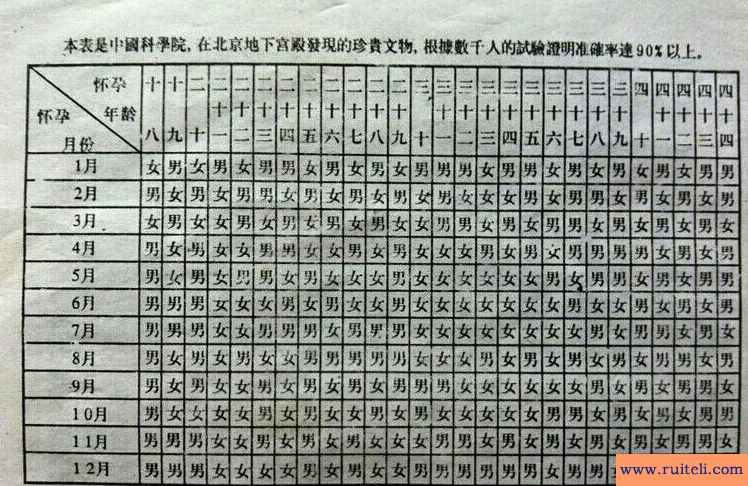 本表是中國科學院，在北京地下宫殿發現的珍貴文物，根據數千人的試驗證明准確率達90%以上。
怀孕年齡 十八 十九 二十 二十一 二十二 二十三 二十四 二十五 二十六 二十七 二十八 二十九 三十 三十一 三十二 三十三 三十四 三十五 三十六 三十七 三十八 三十九 四十 四十一 四十二 四十三 四十四
怀孕月份
1月 女 男 女 男 女 男 男 女 男 女 男 女 男 男 男 男 男 男 男 男 女 男 女 男 女 男 男
2月 男 女 男 女 男 男 女 男 女 男 女 男 女 男 女 女 女 男 女 男 女 女 男 男 女 男 女
3月 女 男 女 男 女 男 男 女 男 女 男 女 女 男 男 女 男 女 男 男 男 女 女 男 女 男 女
4月 男 女 男 女 女 男 男 女 女 男 女 男 女 女 女 男 女 男 女 男 男 男 男 女 男 女 男
5月 男 女 男 女 男 男 女 女 女 女 女 男 女 女 女 女 女 女 男 女 男 男 女 男 女 男 男
6月 男 男 男 女 女 女 男 女 男 女 女 女 女 女 女 女 女 女 女 男 女 女 男 女 男 女 男
7月 男 男 男 女 女 男 男 男 男 女 男 男 男 女 女 女 女 女 女 女 男 女 男 男 女 男 女
8月 男 女 男 女 男 女 女 男 男 男 男 男 女 女 女 男 女 女 男 女 男 女 男 女 男 女 男
9月 男 女 男 女 女 男 女 男 女 男 女 女 男 男 男 女 女 女 女 女 男 女 男 女 男 男 女
10月 男 女 女 女 女 男 女 男 女 女 男 女 男 女 女 女 女 女 男 男 女 男 女 男 女 男 男
11月 男 男 男 女 女 男 女 男 女 男 女 女 女 男 男 男 女 女 男 男 女 女 男 女 男 男 女
12月 男 男 男 女 女 女 女 男 女 男 女 女 男 男 男 男 男 男 男 男
www.ruiteli.com